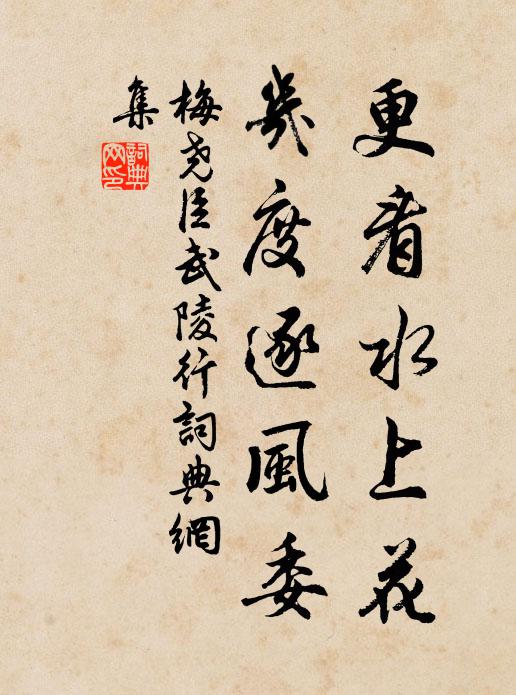 更看水上花
幾度逐風委
梅堯臣武陵行詞典網
集
詞典
网印